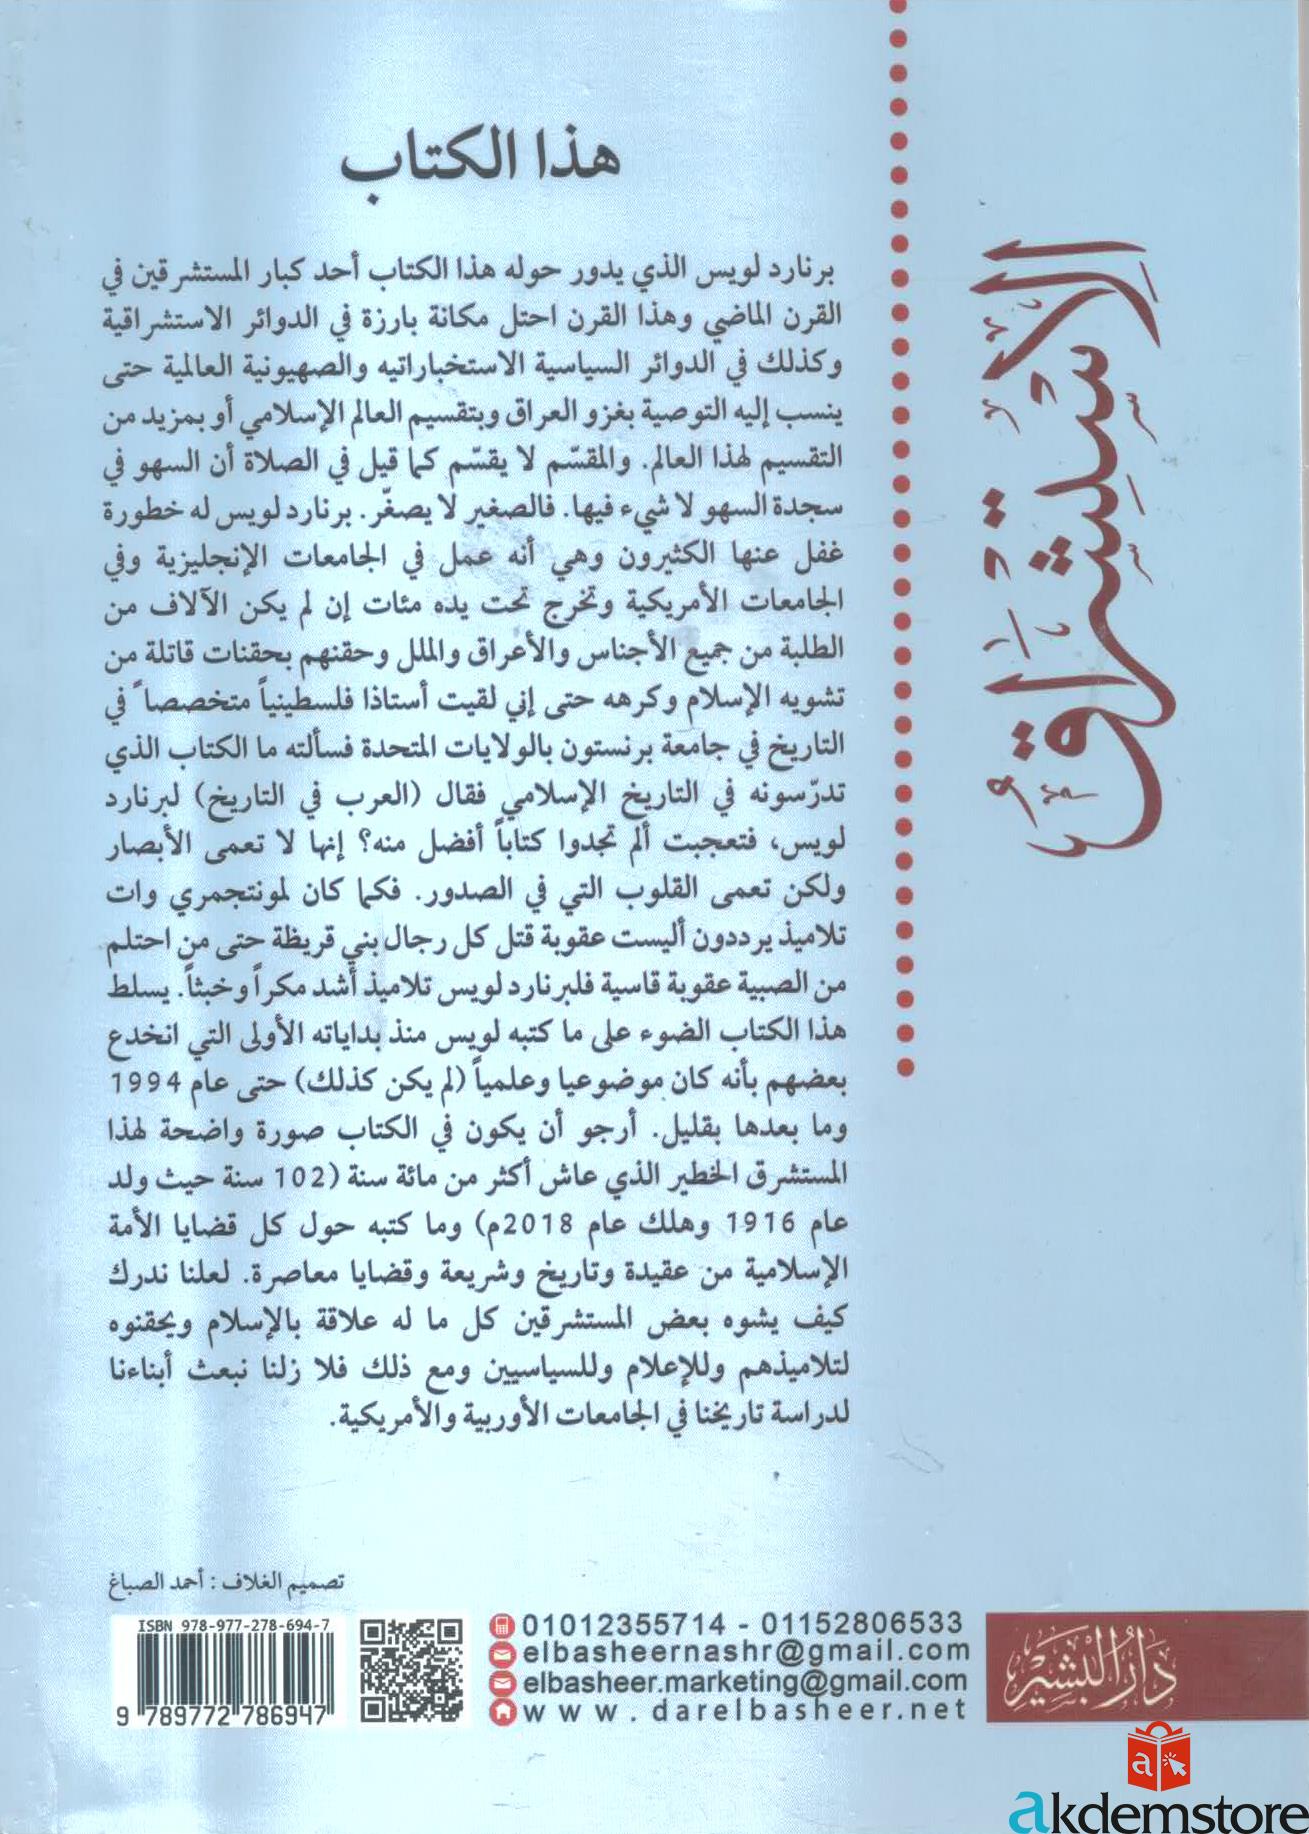 هذا الكتاب
برنارد لويس الذي يدور حوله هذا الكتاب أحد كبار المستشرقين في
القرن الماضي وهذا القرن احتل مكانة بارزة في الدوائر الاستشراقية
وكذلك في الدوائر السياسية الاستخباراتيه والصهيونية العالمية حتى
ينسب إليه التوصية بغزو العراق وبتقسيم العالم الإسلامي أو بمزيد من
التقسيم لهذا العالم. والمقسّم لا يقسّم كما قيل في الصلاة أن السهو في
سجدة السهو لا شيء فيها. فالصغير لا يصغّر. برنارد لويس له خطورة
غفل عنها الكثيرون وهي أنه عمل في الجامعات الإنجليزية وفي
الجامعات الأمريكية وتخرج تحت يده مئات إن لم يكن الآلاف من
الطلبة من جميع الأجناس والأعراق والملل وحقنهم بحقنات قاتلة من
تشويه الإسلام وكرهه حتى إني لقيت أستاذا فلسطينياً متخصصاً في
التاريخ في جامعة برنستون بالولايات المتحدة فسألته ما الكتاب الذي
تدرّسونه في التاريخ الإسلامي فقال (العرب في التاريخ) لبرنارد
لويس، فتعجبت ألم تجدوا كتاباً أفضل منه؟ إنها لا تعمى الأبصار
ولكن تعمى القلوب التي في الصدور. فكما كان لمونتجمري وات
تلاميذ يرددون أليست عقوبة قتل كل رجال بني قريظة حتى من احتلم
من الصبية عقوبة قاسية فلبرنارد لويس تلاميذ أشد مكراً وخبثاً. يسلط
هذا الكتاب الضوء على ما كتبه لويس منذ بداياته الأولى التي انخدع
بعضهم بأنه كان موضوعيا وعلمياً (لم يكن كذلك) حتى عام 1994
وما بعدها بقليل. أرجو أن يكون في الكتاب صورة واضحة لهذا
المستشرق الخطير الذي عاش أكثر من مائة سنة (102 سنة حيث ولد
عام 1916 وهلك عام 2018م) وما كتبه حول كل قضايا الأمة
الإسلامية من عقيدة وتاريخ وشريعة وقضايا معاصرة. لعلنا ندرك
كيف يشوه بعض المستشرقين كل ما له علاقة بالإسلام ويحقنوه
لتلاميذهم وللإعلام وللسياسيين ومع ذلك فلا زلنا نبعث أبناءنا
لدراسة تاريخنا في الجامعات الأوربية والأمريكية.
الاستشراق
تصميم الغلاف : أحمد الصباغ
ISBN 978-977-278-694-7
9 789772 786947
01012355714 - 01152806533
elbasheernashr@gmail.com
elbasheer.marketing@gmail.com
www.darelbasheer.net
دار البشير
a
akdemstore